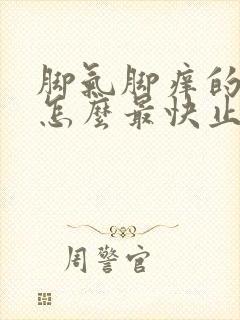 脚氣脚痒的
怎麼最快止
周警官